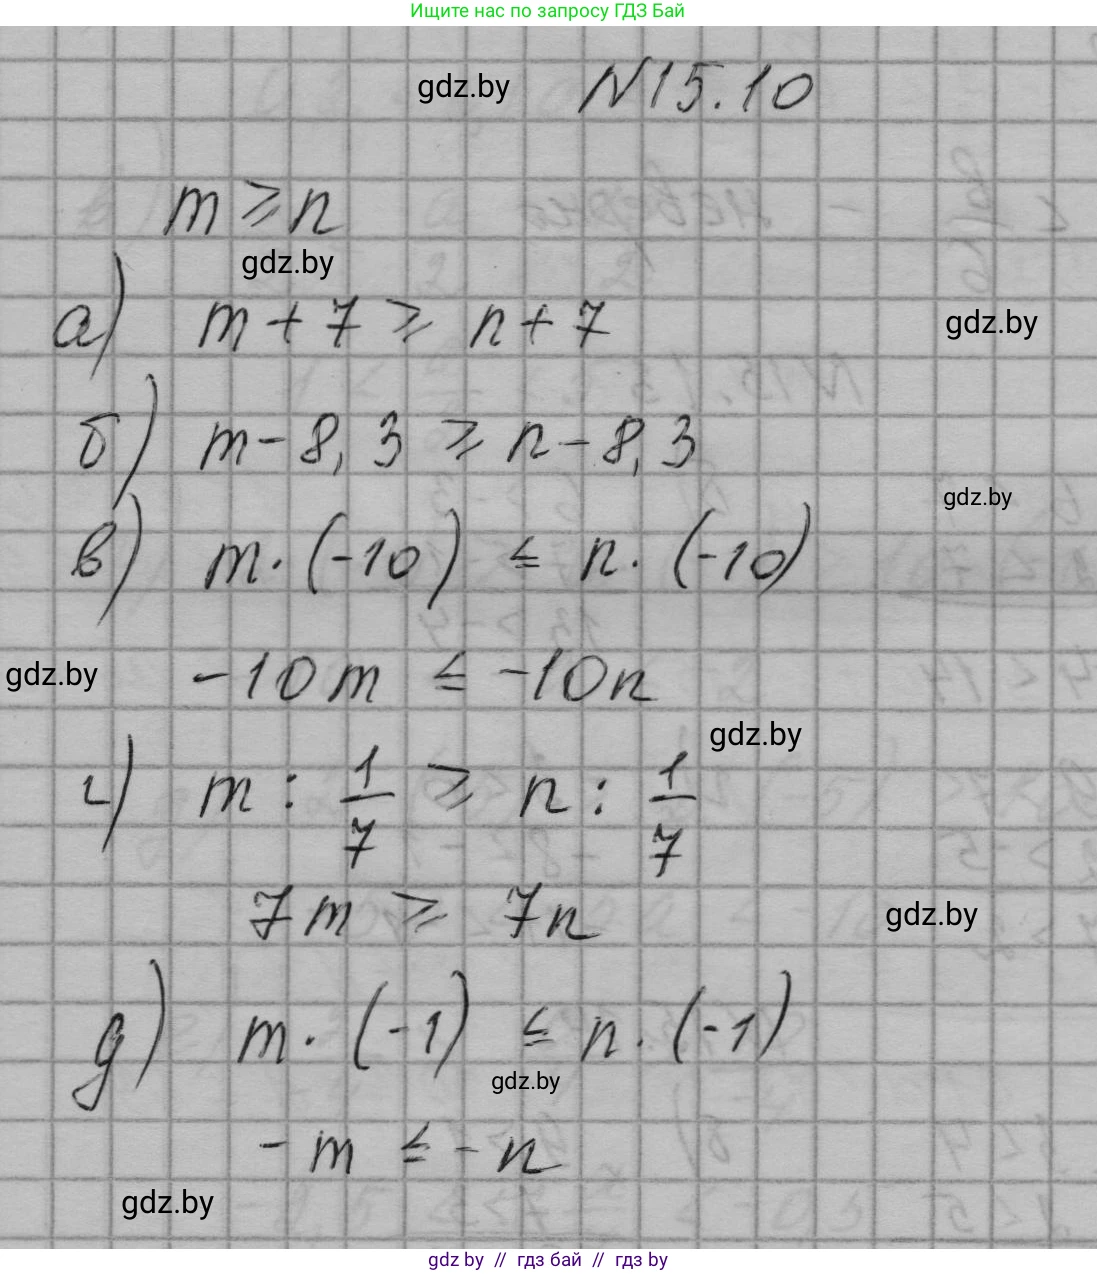 Ищите нас по запросу ГДЗ Бай
gdz.by
N15.10
m ⩾ n
gdz.by
а) m + 7 ⩾ n + 7
gdz.by
б) m - 8,3 ⩾ n - 8,3
gdz.by
в) m · (-10) ≤ n · (-10)
gdz.by
-10m ≤ -10n
gdz.by
г) m : 1/7 ⩾ n : 1/7
7m ⩾ 7n
gdz.by
д) m · (-1) ≤ n · (-1)
gdz.by
- m ≤ - n
gdz.by
gdz by // гдз бай // гдз by